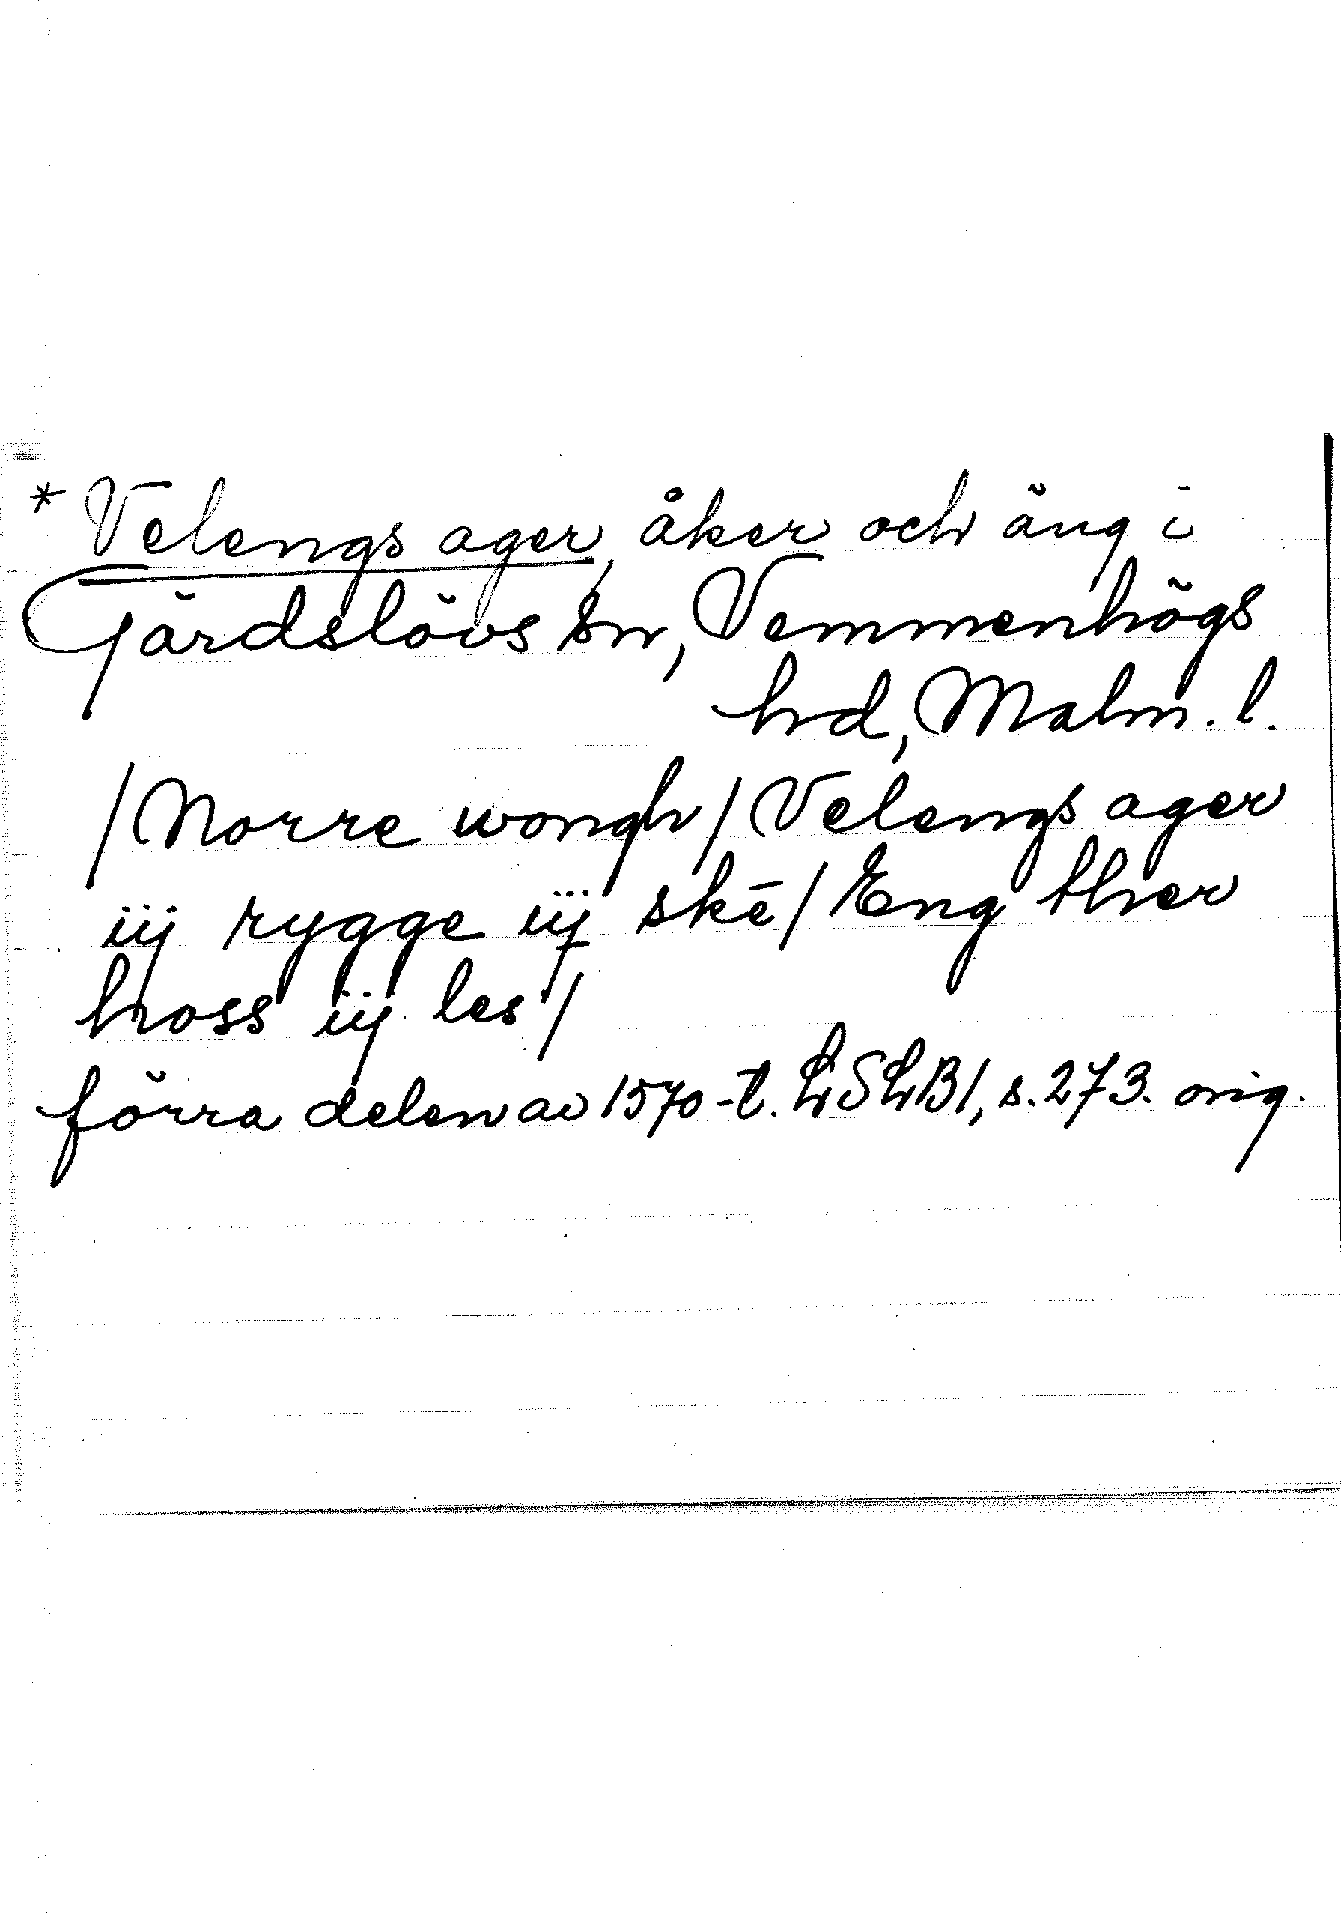 * Velengs ager, åker och äng i
Gärdslövs sn, Vemmenhögs
hd, Malm. l.
/Norre wongh/ Velengs ager
iij rygge iij skē/ Eng ther
hoss iij les /
förra delen av 1570-t. LSLB1, s. 273. orig.